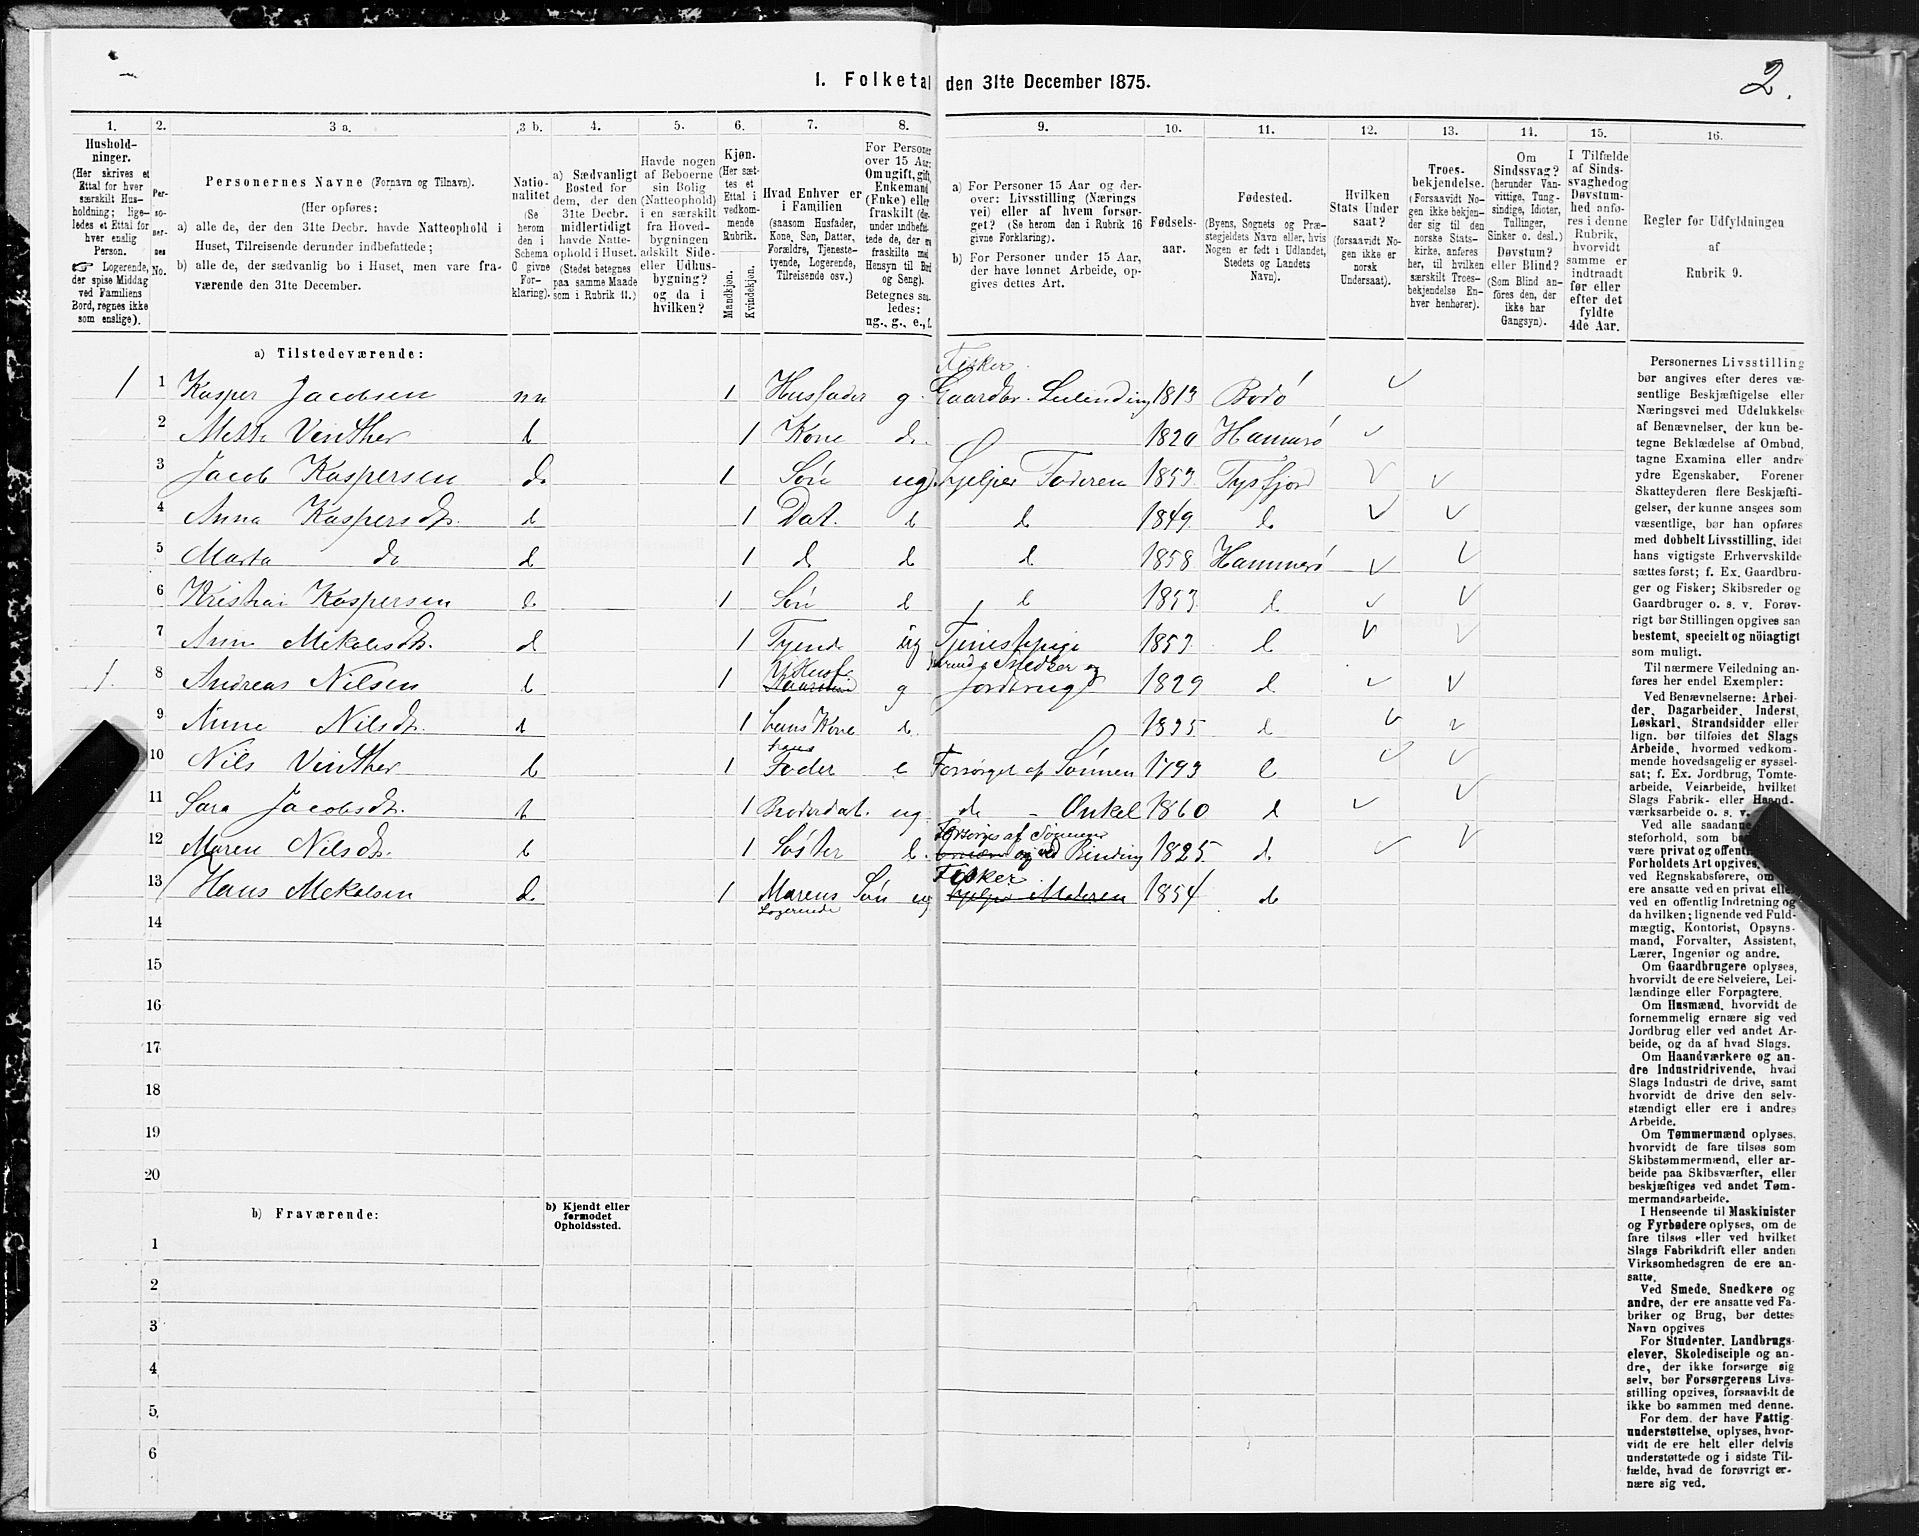 2.
1. Folketal den 31te December 1875.
1. 2. 3 a. 3 b. 4. 5. 6. 7. 8. 9. 10. 11. 12. 13. 14. 15. 16.
Hushold-
ninger.
(Her skrives et
Ettal for hver
særskilt Hus-
holdning; lige-
ledes et Ettal for
hver enslig
Person.
☞ Logerende,
der spise Middag
ved Familiens
Bord, regnes ikke
som enslige).
Per-
so-
ner-
nes
No.
Personernes Navne (Fornavn og Tilnavn).
(Her opføres:
a) alle de, der den 31te Decbr. havde Natteophold i
Huset, Tilreisende derunder indbefattede;
b) alle de, der sædvanlig bo i Huset, men vare fra-
værende den 31te December.
Natio-
nalitet
(Se
herom
den i
Schema
C givne
For-
klaring).
a) Sædvanligt
Bosted for
dem, der den
31te Decbr.
midlertidigt
havde Natte-
ophold i Huset.
(Stedet betegnes
paa samme Maade
som i Rubrik 11.)
Havde nogen
af Beboerne
sin Bolig
(Natteophold)
i en særskilt
fra Hoved-
bygningen
adskilt Side-
eller Udhus-
bygning?
og da i
hvilken?
Kjøn.
(Her sæt-
tes et
Ettal i
vedkom-
mende
Rubrik.
Mandkjøn.
Kvindekjøn.
Hvad Enhver er
i Familien
(saasom Husfader,
Kone, Søn, Datter,
Forældre, Tjeneste-
tyende, Logerende,
Tilreisende osv.)
For Personer
over 15 Aar:
Om ugift, gift,
Enkemand
(Enke) eller
fraskilt (de-
under indbefat-
tede de, der er
fraskilte med
Hensyn til Bord
og Seng).
Betegnes saa-
ledes:
ug., g., e., f.
a) For Personer 15 Aar og der-
over: Livsstilling (Nærings-
vei) eller af hvem forsør-
get? (Se herom den i Rubrik 16
givne Forklaring).
b) For Personer under 15 Aar,
der have lønnet Arbeide, op-
gives dettes Art.
Fødsels-
aar.
Fødested.
(Byens, Sognets og Præ-
stegjeldets Navn eller, hvis
Nogen er født i Udlandet,
Stedets og Landets
Navn).
Hvilken
Stats Under-
saat?
(forsaavidt No-
gen ikke er
norsk
Undersaat).
Troes-
bekjendelse.
(Forsaavidt No-
gen ikke bekjen-
der sig til den
norske Stats-
kirke, anføres
her, til hvilken
særskilt Troes-
bekjendelse En-
hver henhører).
Om
Sindssvag?
(herunder Van-
vittige, Tung-
sindige, Idioter,
Tullinger,
Sinker o. desl.)
Døvstum?
eller Blind?
(Som Blind an-
føres den, der
ikke har
Gangsyn).
I Tilfælde
af Sinds-
svaghed og
Døvstum-
hed anfø-
res i denne
Rubrik,
hvorvidt
samme er
indtraadt
før eller
efter det
fyldte
4de Aar.
Regler for Udfyldningen
af
Rubrik 9.
a) Tilstedeværende:
1 1 Kasper Jacobsen nn 1 Husfader g. Fisker. Gaardbr. Leilending 1813 Bodö
2 Mette Vinther d 1 Kone d. 1820 Hammerö
3 Jacob Kaspersen do 1 Sön ug. Hjelper Faderen 1853 Tysfjord
4 Anna Kaspersdtr. d 1 Dat. d d 1849 d
5 Marta do d 1 d d d 1858 Hammerö
6 Kristian Kaspersen d 1 Sön d d 1853 d
7 Ann Mikalsdtr. d 1 Tyende ug Tjenestepige 1853 d
1. 8 Andreas Nilsen d 1 Husf. g Snedker og Jordbrug 1829 d
9 Anne Nilsdtr. d 1 hans Kone d. 1835 d
10 Nils Vinther d 1 hans Fader e Forsörget af Sönnen 1793 d
11 Sara Jacobsdtr. d 1 Broderdat. ug. do - Onkel 1860 d
12 Maren Nilsdtr. d 1 Söster d. Forsörges af Sönnen og ved Binding 1825 d
13 Hans Mikalsen d 1 Marens Sön Logerende ug Fisker. Hjelper Moderen 1854 d
14
15
16
17
18
19
20
b) Fraværende:
b) Kjendt eller
formodet
Opholdssted.
1
2
3
4
5
6
Personernes Livsstilling
bør angives efter deres væ-
sentlige Beskjæftigelse eller
Næringsvei med Udelukkelse
af Benævnelser, der kun be-
tegne Beklædelse af Ombud,
tagne Examina eller andre
ydre Egenskaber. Forener
Skatteyderen flere Beskjæfti-
gelser, der kunne ansees som
væsentlige, bør han opføres
med dobbelt Livsstilling, idet
hans vigtigste Erhvervskilde
sættes først; f. Ex. Gaardbru-
ger og Fisker; Skibsreder og
Gaardbruger o. s. v. Forøv-
rigt bør Stillingen opgives saa
bestemt, specielt og nöiagtigt
som muligt.
Til nærmere Veiledning an-
føres her endel Exempler:
Ved Benævnelserne: Arbei-
der, Dagarbeider, Inderst,
Løskarl, Strandsidder eller
lign. bør tilføies det Slags
Arbeide, hvormed vedkom-
mende hovedsagelig er syssel-
sat; f. Ex. Jordbrug, Tomte-
arbeide, Veiarbeide, hvilket
Slags Fabrik- eller Haand-
værksarbeide o. s. v.
Ved alle saadanne
steforhold, som
være privat og offent
Forholdets Art opgives,
ved Regnskabsførere, om
ere ansatte ved en privat eller
ved en offentlig Indretning og
da hvilken; lignende ved Fuld-
mægtig, Kontorist, Opsyns-
mand, Forvalter, Assistent,
Lærer, Ingeniør og andre.
Om Gaardbrugere oplyses,
hvorvidt de ere Selveiere, Lei-
lændinge eller Forpagtere.
Om Husmænd, hvorvidt de
fornemmelig ernære sig ved
Jordbrug eller ved andet Ar-
beide, og da af hvad Slags.
Om Haandværkere og an-
dre Industridrivende, hvad
Slags Industri de drive, samt
hvorvidt de drive den selv-
stændigt eller ere i andres
Arbeide.
Om Tømmermænd oplyses,
hvorvidt de fare tilsøs som
Skibstømmermænd, eller ar-
beide paa Skibsværfter, eller
beskjæftiges ved andet Tøm-
mermandsarbeide.
I Henseende til Maskinister
og Fyrbødere oplyses, om de
fare tilsøs eller ved hvilket
Slags Fabrikdrift eller anden
Virksomhedsgren de ere an-
satte.
Ved Smede, Snedkere og
andre, der ere ansatte ved Fa-
briker og Brug, bør dettes
Navn opgives
For Studenter, Landbrugs-
elever, Skoledisciple og an-
dre, der ikke forsørge sig
selv, bør Forsørgerens Livs-
stilling opgives, forsaavidt de
ikke bo sammen med denne.
For dem, der have Fattig-
understøttelse, oplyses, hvor-
vidt de ere helt eller delvis
understøttede og i sidste Til-
fælde, hvad de forøvrigt er-
nære sig ved.